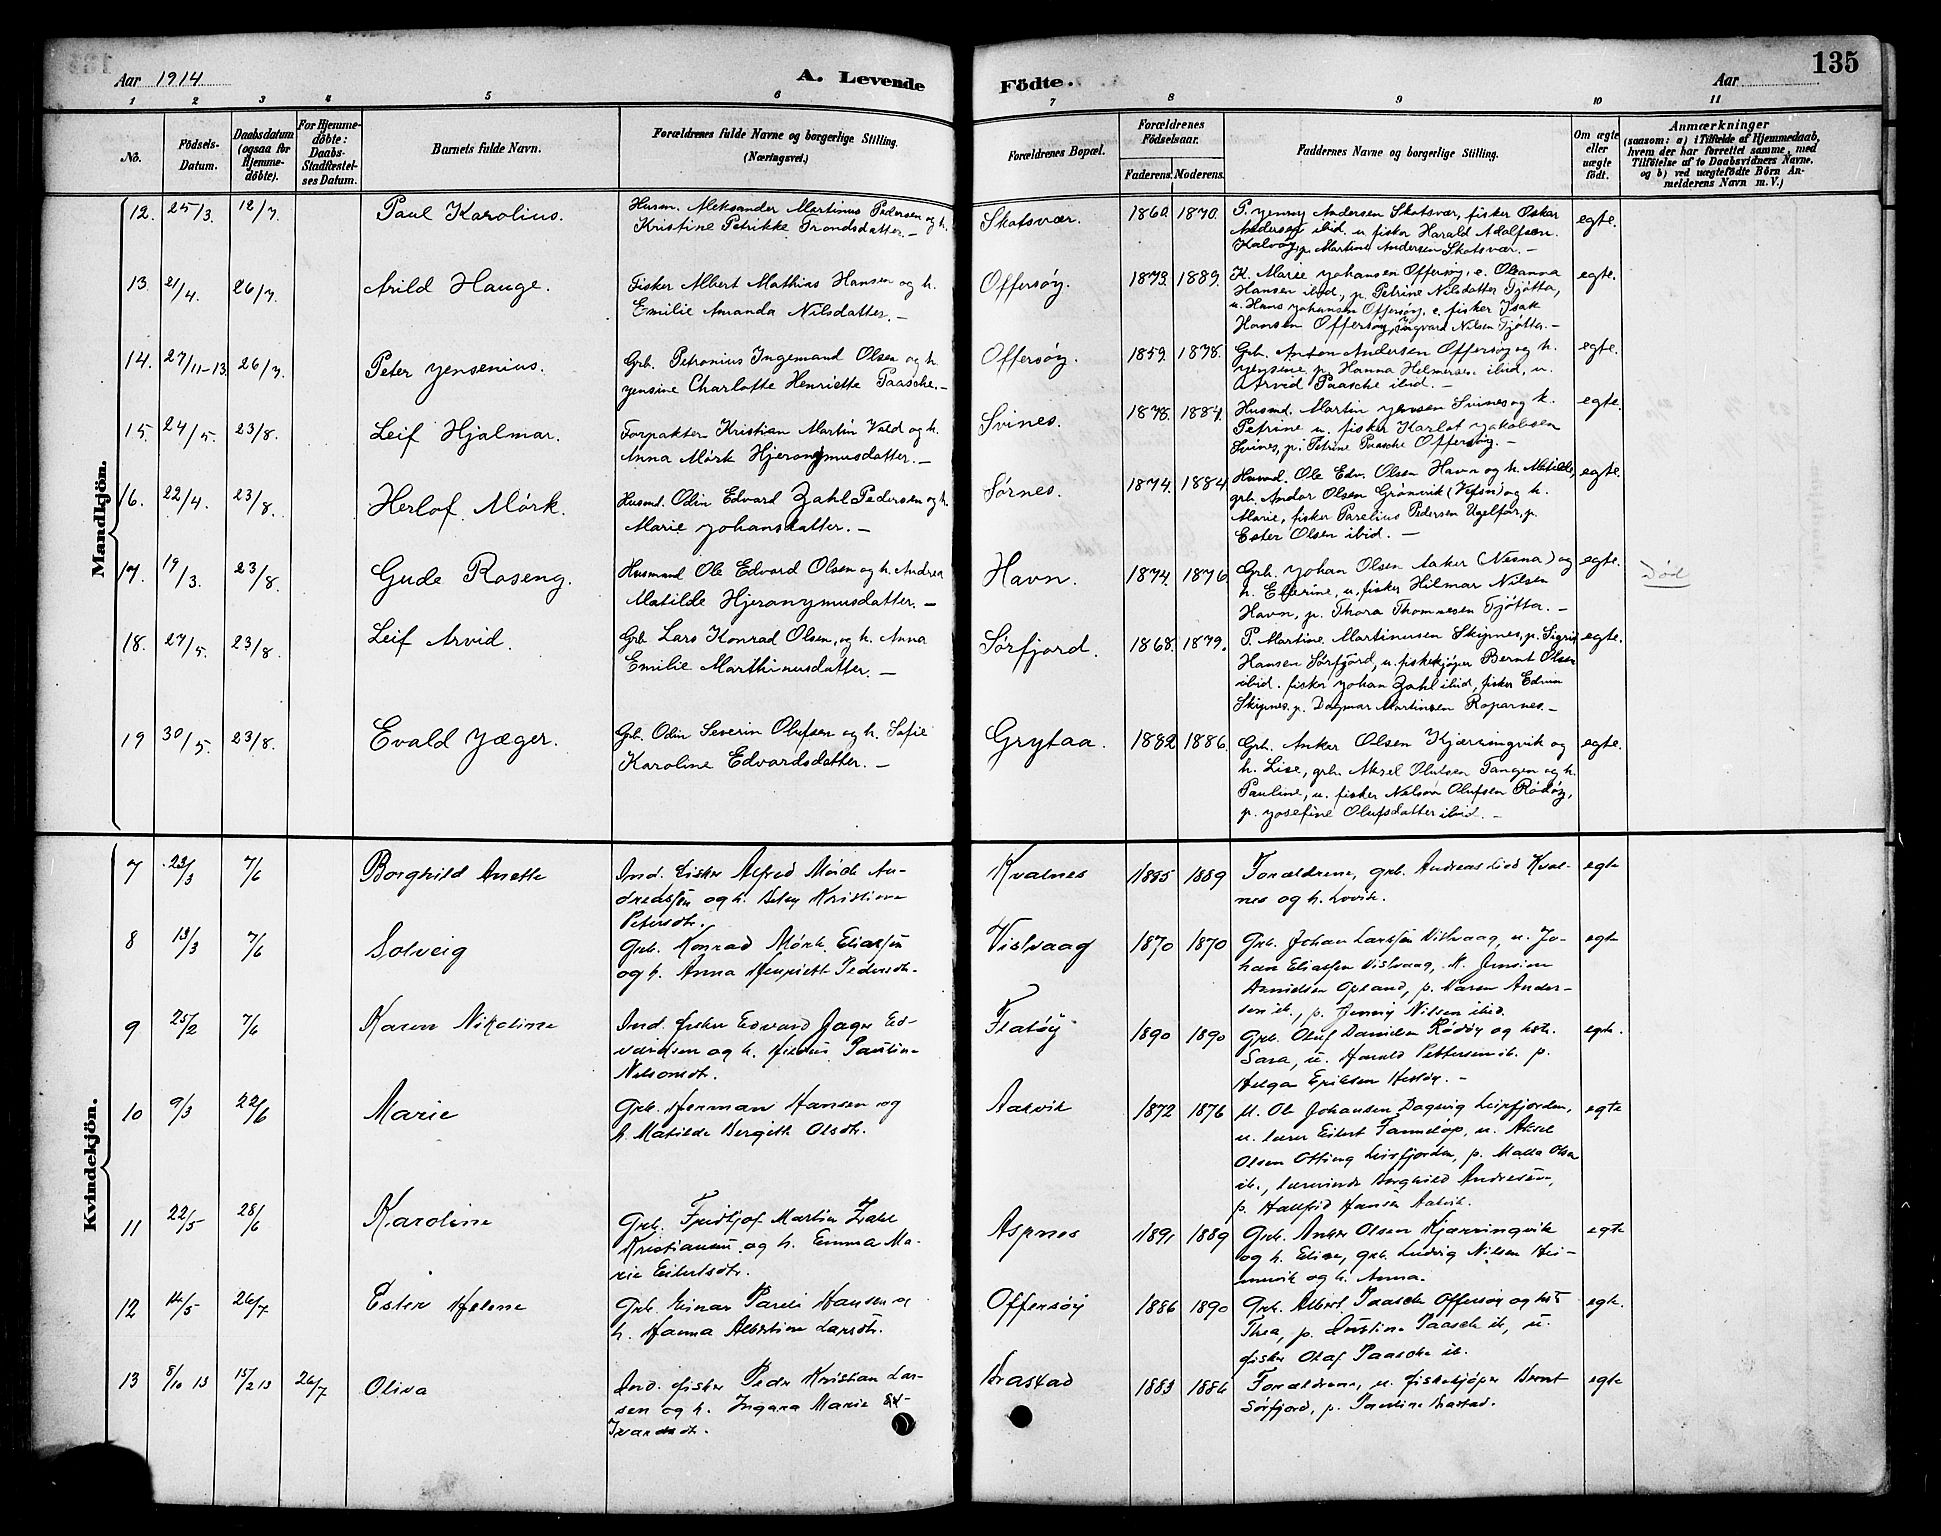 Aar 1914
A. Levende
Födte.
Aar
135
1 2 3 4 5 6 7 8 9 10 11
No.
Födsels-
Datum.
Daabsdatum
(ogsaa for
Hjemme-
döbte).
For Hjemme-
döbte:
Daabs-
Stadfæstel-
ses Datum.
Barnets fulde Navn.
Forældrenes fulde Navne og borgerlige Stilling.
(Næringsvei.)
Forældrenes Bopæl.
Forældrenes
Födselsaar.
Faderens. Moderens.
Faddernes Navne og borgerlige Stilling.
Om ægte
eller
uægte
födt.
Anmærkninger
(saasom: a) i Tilfælde af Hjemmedaab,
hvem der har forrettet samme, med
Tilföielse af to Daabsvidners Navne.
og b) ved uægtefödte Börn An-
melderens Navn m. V.)
Mandkjön.
12. 25/3. 12/7. Paul Karolius. Husm. Aleksander Martinus Pedersen og h.
Kristine Petrikke Trondsdatter. —
Skotsvær. 1860. 1870. P. Yenny Andersen Skotsvær, fisker Oskar
Andersen ibid, u. fisker Harald Adolfsen
Kalvøy, p. Martine Andersen Skotsvær. —
egte.
13. 21/4. 26/7. Arild Hauge. Fisker Albert Mathias Hansen og h.
Emilie Amanda Nilsdatter. —
Offersøy. 1873. 1889. K. Marie Yohansen Offersøy, e. Oleanna
Hansen ibid, p. Petrine Nilsdatter Tjøtta,
u. Hans Yohansen Offersøy, e. fisker Isak
Hansen Offersøy, Ingvard Nilsen Tjøtta. —
egte.
14. 27/11-13 26/7. Peter Yensenius. Grb. Petronius Ingemand Olsen og h.
Yensine Charlotte Henriette Paasche. —
Offersøy. 1859. 1878. Grb. Anton Andersen Offersøy og h.
Yensine, p. Hanna Helmersen ibid, u.
Arvid Paasche ibid. —
egte.
15. 24/5. 23/8. Leif Hjalmar. Forpakter Kristian Martin Vald og h.
Anna Mørk Hjeronymusdatter. —
Svines. 1878. 1884. Husmd. Martin Yensen Svines og h.
Petrine u. fisker Karlot Yakobsen
Svines, p. Petrine Paasche Offersøy. —
egte.
16. 22/4. 23/8. Herlof Mørk. Husmd. Odin Edvard Zahl Pedersen og h.
Marie Yohansdatter. —
Sørnes. 1874. 1884. Husmd. Ole Edv. Olsen Havn og h. Matilde,
grb. Andor Olsen Grønvik (Vefsn) og h.
Marie, fisker Parelius Pedersen Ugelfar, p.
Ester Olsen ibid. —
egte.
17. 19/3. 23/8. Gude Roseng. Husmand Ole Edvard Olsen og h. Andrea
Matilde Hjeronymusdatter. —
Havn. 1874. 1876. Grb. Yohan Olsen Aaker (Nesna) og
h. Elferine, u. fisker Hilmar Nilsen
Havn, p. Thora Thommesen Tjøtta. —
egte. Død
18. 27/5. 23/8. Leif Arvid. Grb. Lars Konrad Olsen, og h. Anna
Emilie Marthinusdatter. —
Sørfjord. 1868. 1879. P. Martine Martinusen Skipnes, p. Sigrid
Hansen Sørfjord, u. fiskekjøper Bernt Olsen
ibid. fisker Yohan Zahl ibid, fisker Edvin
Skipnes, p. Dagmar Martinsen Roparnes. —
egte.
19 30/5. 23/8. Evald Yæger. Grb. Odin Severin Olufsen og h. Sofie
Karoline Edvardsdatter. —
Grytaa. 1882 1886. Grb. Anker Olsen Kjærringvik og
h. Lise, grb. Aksel Olutsen Tangen og h.
Pauline, u. fisker Nelson Olufsen Rødøy,
p. Yosefine Olufsdatter ibid. —
egte.
Kvindekjön.
7 23/3 7/6 Borghild Anette Ind. fisker Alfred Meide An-
dreassen og h. Betsy Kristiane
Petersdtr.
Kvalnes 1885 1889 Forældrene, grb. Andreas Lied Kval-
nes og h. Lovise.
egte
8 13/3 7/6 Solveig Grb. Konrad Mørk Eliassen
og h. Anna Henriette Pedersdtr.
Vistvaag 1870 1870 Grb. Johan Larssen Vistvaag, u. Jo-
han Eliassen Vistvaag, K. Jensine
Arnidsen Opland, p. Maren Ander-
sen ib., p. Jenny Nilsen ibid.
egte
9 25/2 7/6 Karen Nikoline Ind. fisker Edvard Jæger Ed-
vardsen og h. Heldus Pauline
Nelsonsdtr.
Flatøy 1890 1890 Grb. Oluf Danielsen Rødøy og hst.
Sara, u. Harald Pettersen ib. p.
Helga Eriksen Hestøy. —
egte.
10 9/3 22/6 Marie Grb. Herman Hansen og
h. Matilde Bergitte Olsdtr.
Aakvik 1872 1876 U. Ole Johansen Dagsvig Leirfjorden,
u. lærer Eilert Fammeløp, u. Aksel
Olsen Otting Leirfjorden, p. Malla Olsen
ib., lærerinde Borghild Andresen,
p. Hallfrid Hansen Aakvik.
egte
11 22/5 28/6 Karoline Grb. Fridtjof Martin Zahl
Kristiansen og h. Emma Ma-
rie Eilertsdtr.
Aspnes 1891 1889 Grb. Anker Olsen Kjærringvik
og h. Elise, grb. Ludvig Nilsen Hei-
mervik og h. Anna.
egte
12 14/5 26/7 Ester Helene Grb. Einar Pareli Hansen og
h. Hanna Albertine Larsdtr.
Offersøy 1886 1890 Grb. Albert Paasche Offersøy og hst.
Thea, p. Justine Paasche ib, u.
fisker Olaf Paasche ib.
egte.
13 8/10 13 15/2 13 26/7 Oliva Ind. fisker Peder Kristian Lar-
sen og h. Ingara Marie
Ivarsdtr.
Brastad 1883 1886 Forældrene, u. fiskekjøper Bernt
Sørfjord, p. Pauline Brastad.
egte